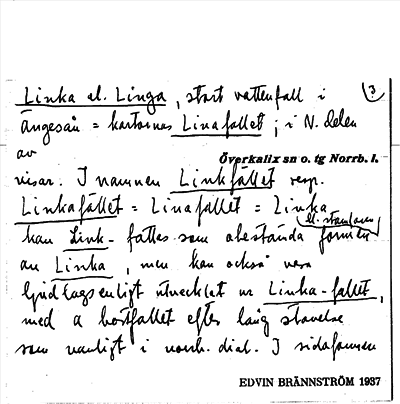 Linka el. Linga, stort vattenfall i 3
Ängesån = kartornas Linafallet; i N. delen
av
Överkalix sn o. tg Norrb. l.
visar. I namnen Linkfallet resp.
Linkafallet = Linafallet = Linka
el. stamform
kan Link- fattas som obestämda formen
av Linka, men kan också vara
ljudlagsenligt utvecklat ur Linka-fallet,
med a bortfallet efter lång stavelse
som vanligt i norrb. dial. I sidoformen
EDVIN BRÄNNSTRÖM 1937